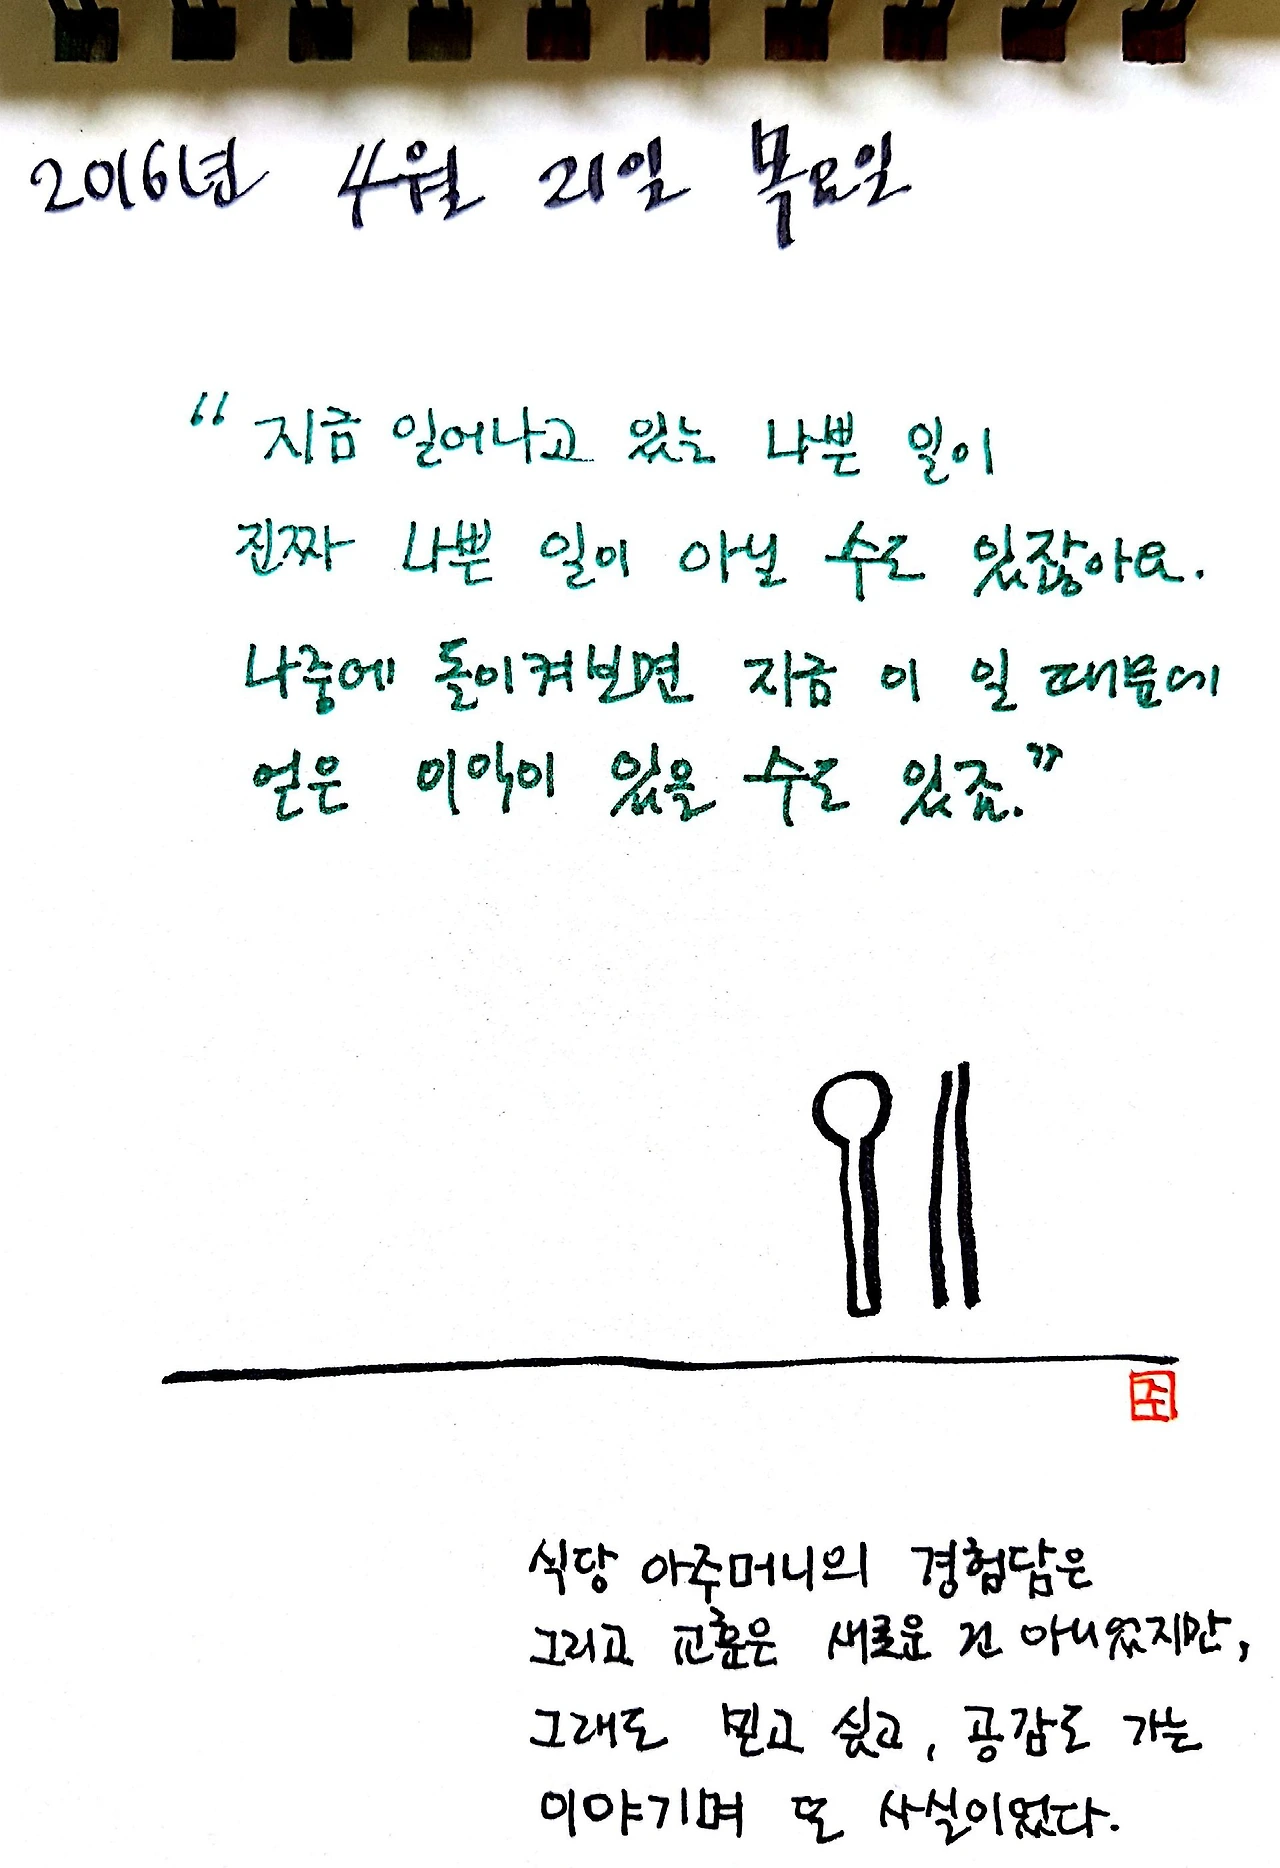 2016년 4월 21일 목요일
“지금 일어나고 있는 나쁜 일이
진짜 나쁜 일이 아닐 수도 있잖아요.
나중에 돌이켜보면 지금 이 일 때문에
얻은 이익이 있을 수도 있죠.”
조
식당 아주머니의 경험담은
그리고 교훈은 새로운 건 아니었지만,
그래도 믿고 싶고, 공감도 가는
이야기며 또 사실이었다.